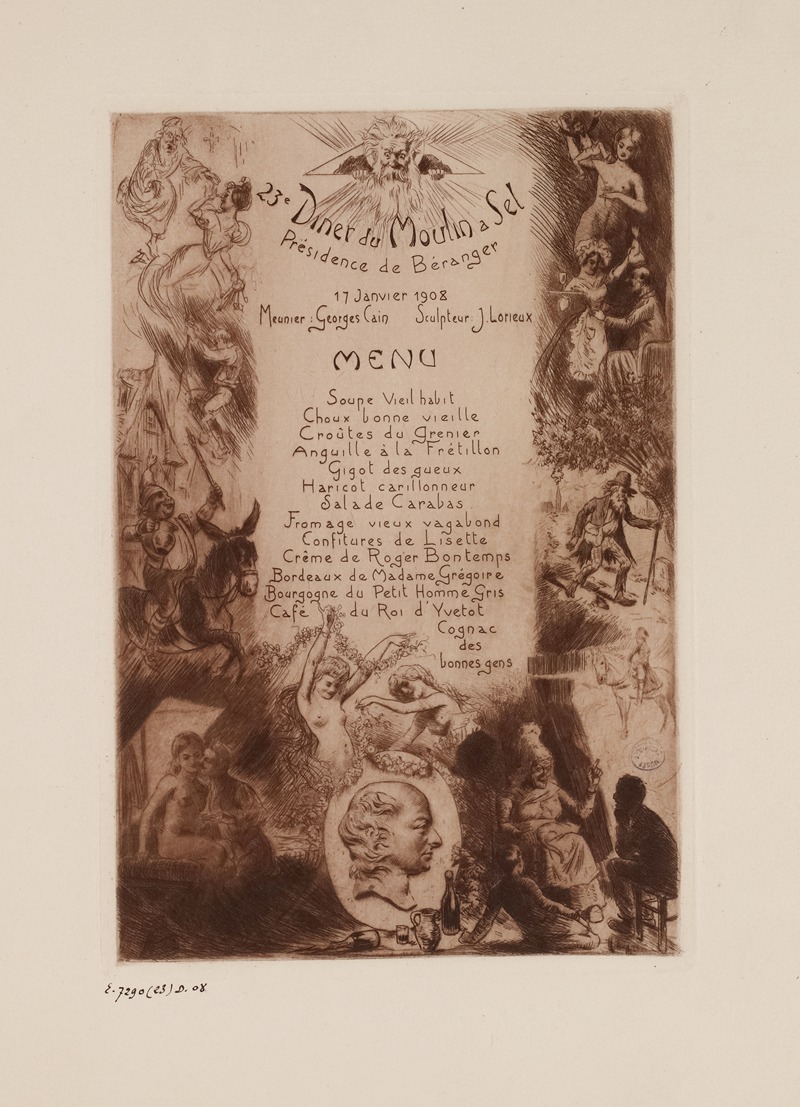 23e Diner du Moulin à Sel
Présidence de Béranger
17 Janvier 1908
Meunier : Georges Cain Sculpteur : J. Lorieux
MENU
Soupe Vieil habit
Choux bonne vieille
Croûtes du Grenier
Anguille à la Frétillon
Gigot des gueux
Haricot carillonneur
Salade Carabas
Fromage vieux vagabond
Confitures de Lisette
Crême de Roger Bontemps
Bordeaux de Madame Grégoire
Bourgogne du Petit Homme Gris
Café du Roi d'Yvetot
Cognac
des
bonnes gens
E. 7290 (23) D. 08